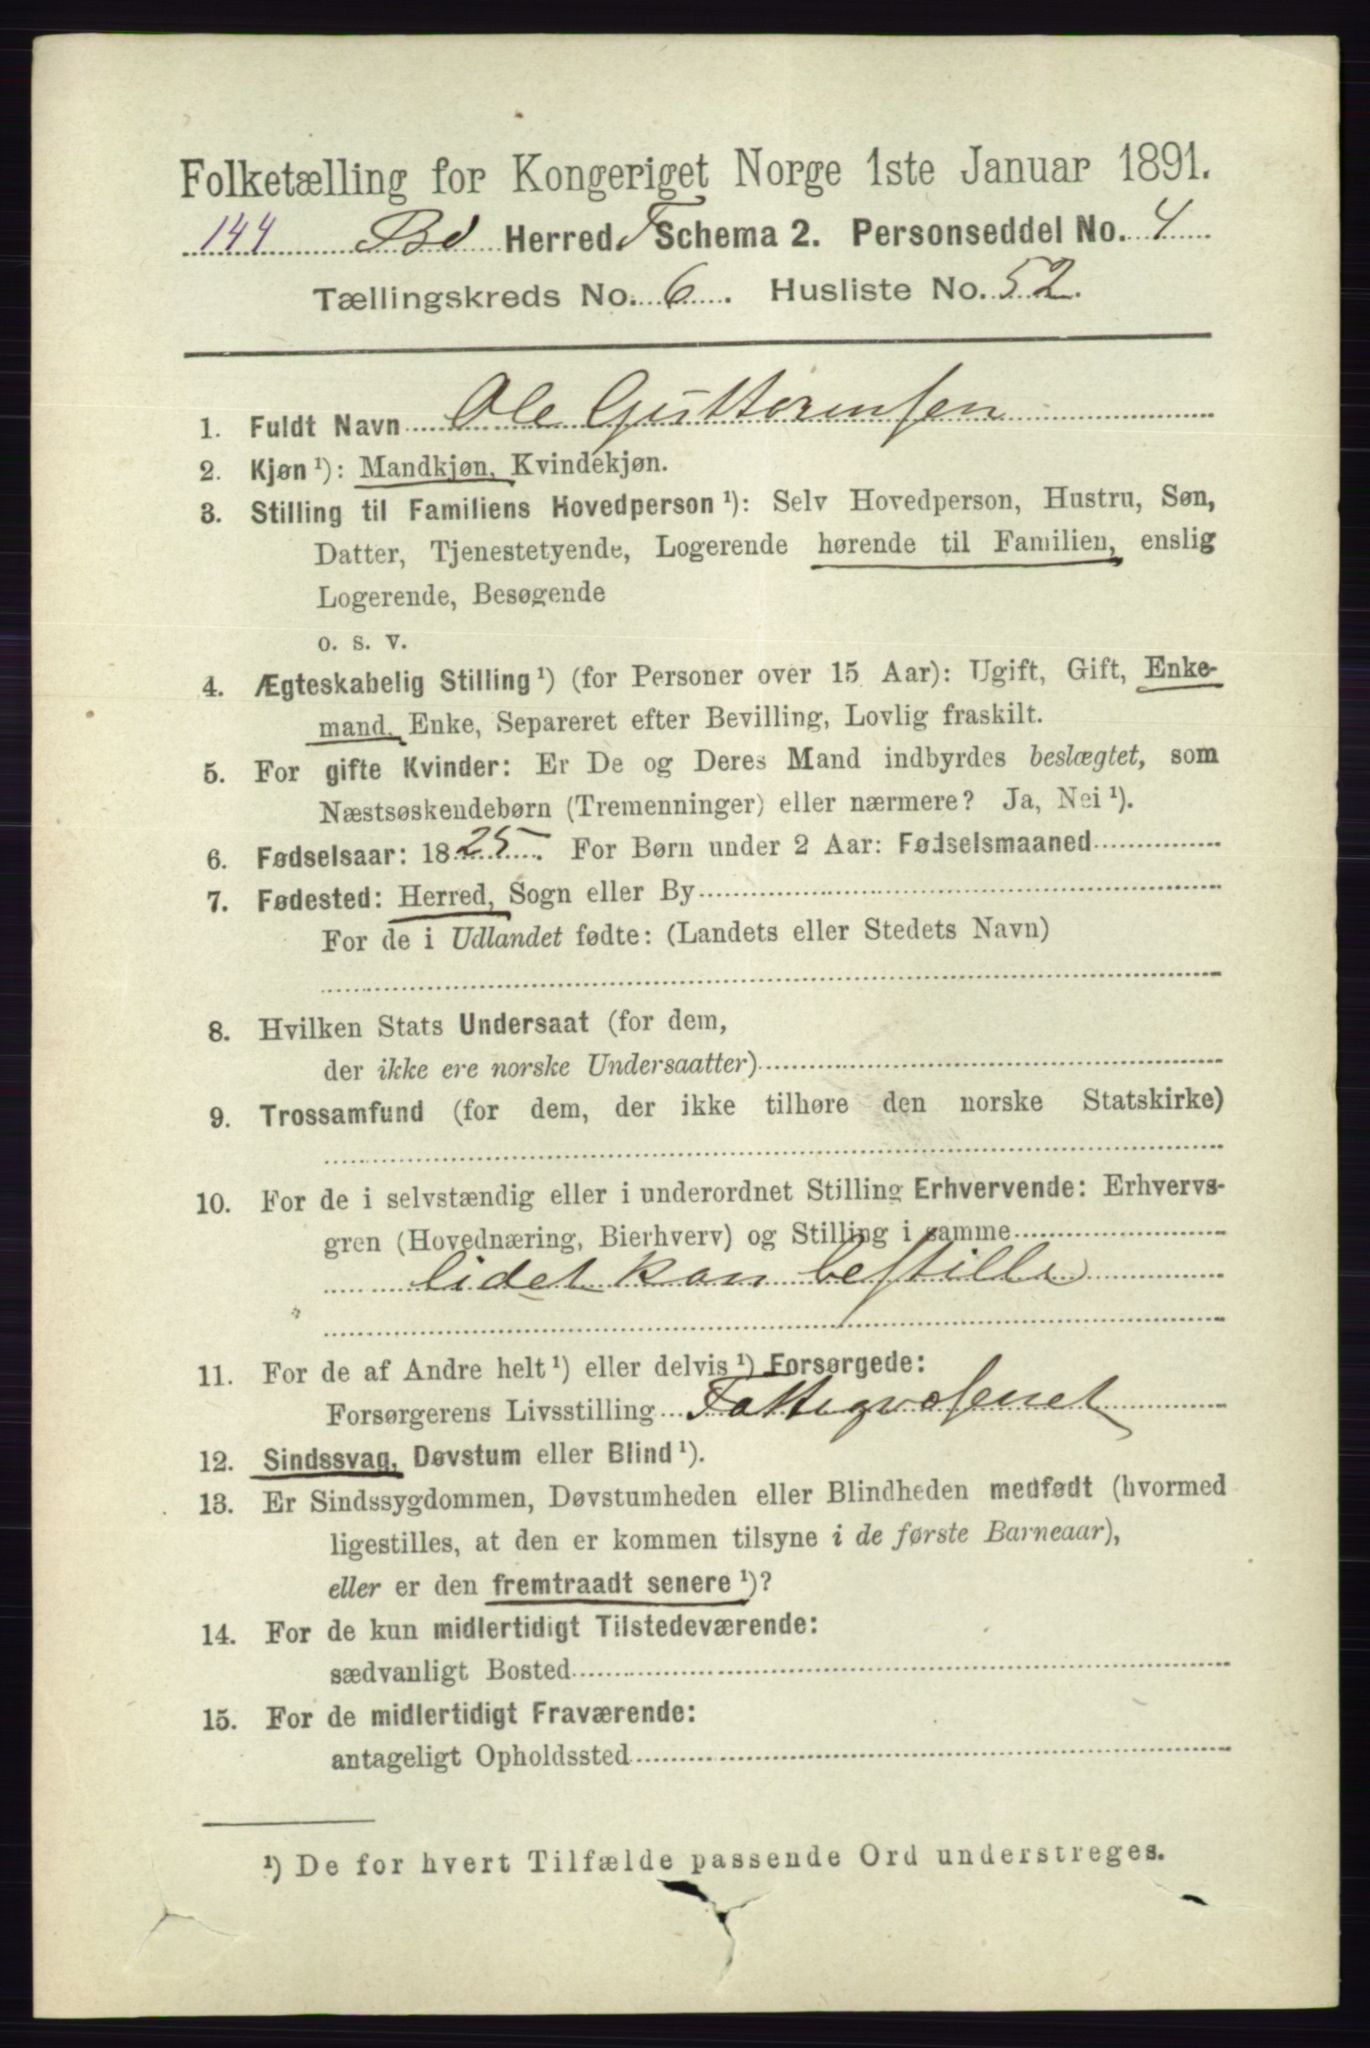 Folketælling for Kongeriget Norge 1ste Januar 1891.
144 Bø Herred T Schema 2. Personseddel No. 4
Tællingskreds No. 6. Husliste No. 52.
1. Fuldt Navn Ole Guttormsen
2. Kjøn ¹): Mandkjøn, Kvindekjøn.
3. Stilling til Familiens Hovedperson ¹): Selv Hovedperson, Hustru, Søn,
Datter, Tjenestetyende, Logerende hørende til Familien, enslig
Logerende, Besøgende
o. s. v.
4. Ægteskabelig Stilling ¹) (for Personer over 15 Aar): Ugift, Gift, Enke-
mand, Enke, Separeret efter Bevilling, Lovlig fraskilt.
5. For gifte Kvinder: Er De og Deres Mand indbyrdes beslægtet, som
Næstsøskendebørn (Tremenninger) eller nærmere? Ja, Nei ¹).
6. Fødselsaar: 1825. For Børn under 2 Aar: Fødselsmaaned
7. Fødested: Herred, Sogn eller By
For de i Udlandet fødte: (Landets eller Stedets Navn)
8. Hvilken Stats Undersaat (for dem,
der ikke ere norske Undersaatter)
9. Trossamfund (for dem, der ikke tilhøre den norske Statskirke)
10. For de i selvstændig eller i underordnet Stilling Erhvervende: Erhvervs-
gren (Hovednæring, Bierhverv) og Stilling i samme
lidet kan bestille
11. For de af Andre helt ¹) eller delvis ¹) Forsørgede:
Forsørgerens Livsstilling Fattigvæsenet
12. Sindssvag, Døvstum eller Blind ¹).
13. Er Sindssygdommen, Døvstumheden eller Blindheden medfødt (hvormed
ligestilles, at den er kommen tilsyne i de første Barneaar),
eller er den fremtraadt senere ¹)?
14. For de kun midlertidigt Tilstedeværende:
sædvanligt Bosted
15. For de midlertidigt Fraværende:
antageligt Opholdssted
¹) De for hvert Tilfælde passende Ord understreges.